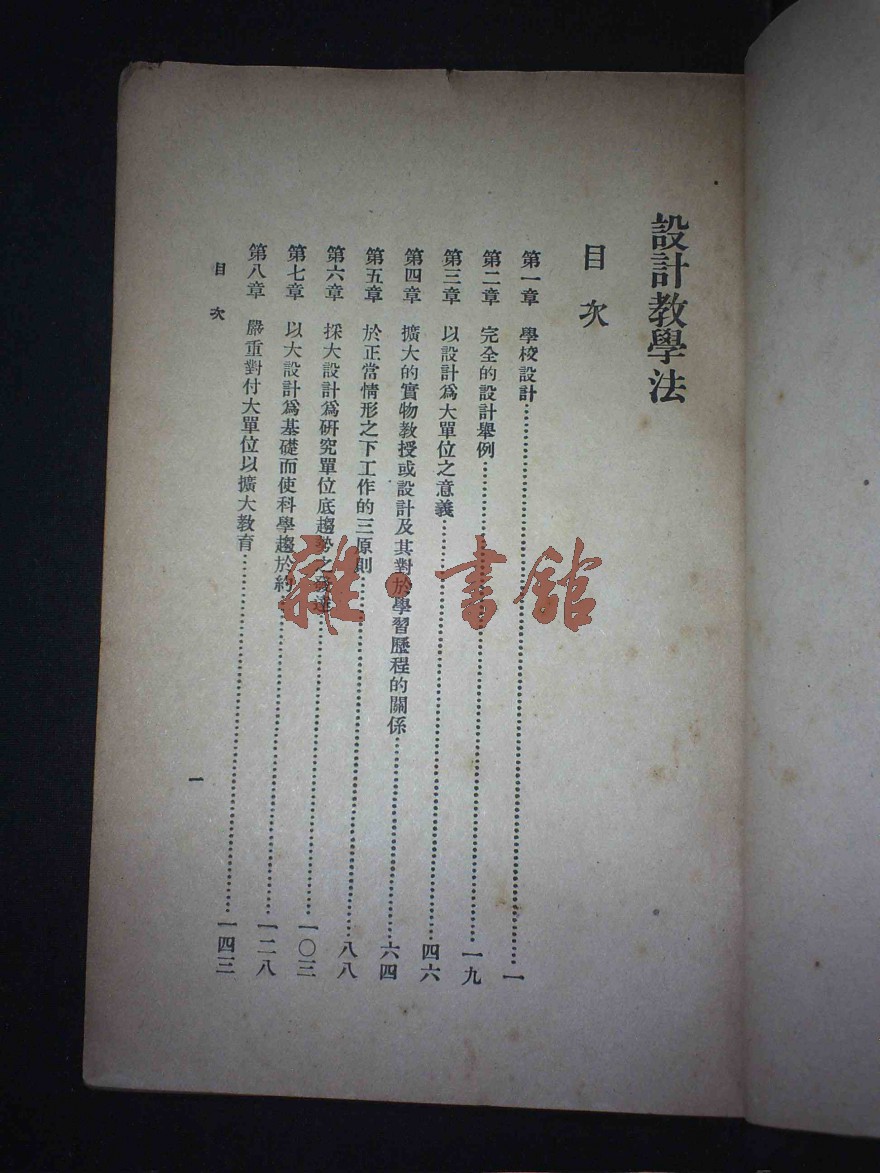 設計教學法
目次
第一章 學校設計……一
第二章 完全的設計舉例……一九
第三章 以設計爲大單位之意義……四六
第四章 擴大的實物教授或設計及其對於學習歷程的關係……六四
第五章 於正常情形之下工作的三原則……八八
第六章 採大設計爲研究單位底趨勢之……一〇三
第七章 以大設計爲基礎而使科學趨於約……一二八
第八章 嚴重對付大單位以擴大教育……一四三
目次
一
雜·書館